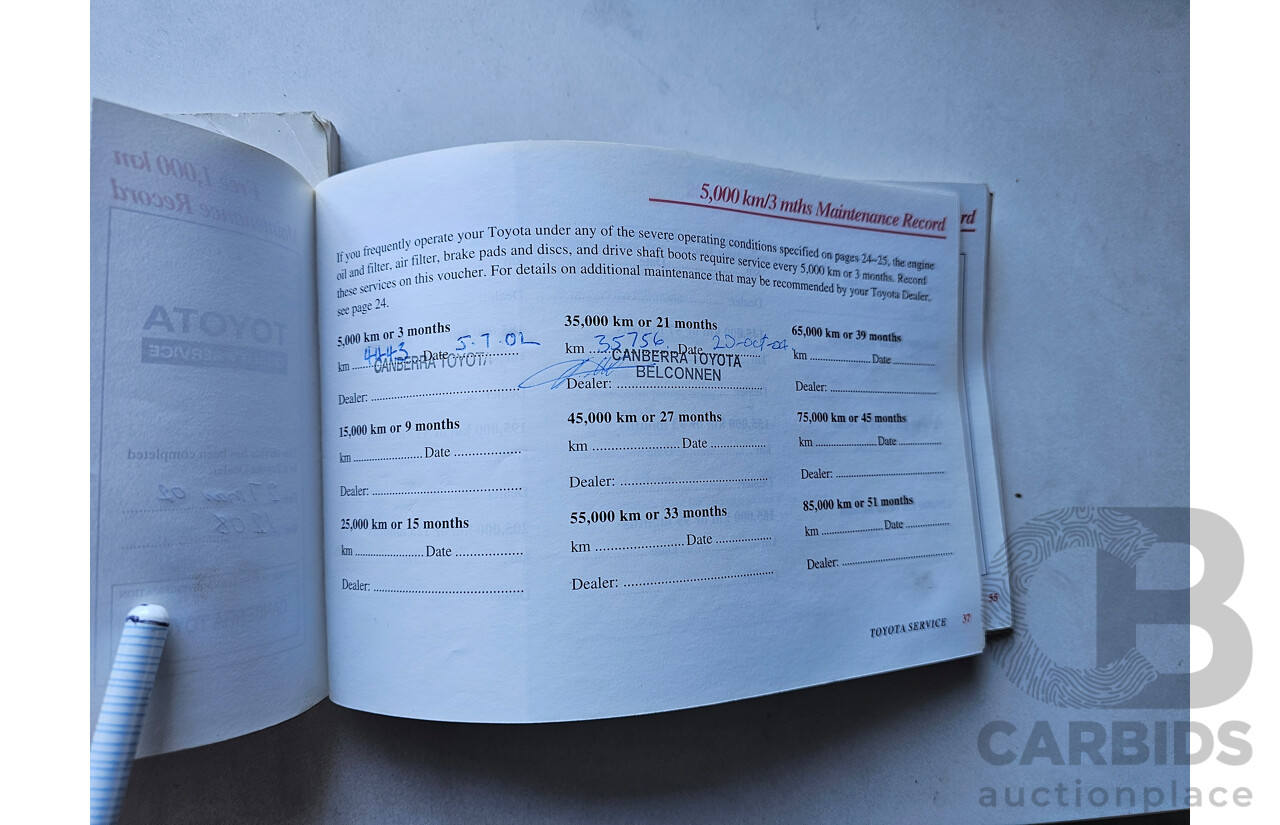 5,000 km/3 mths Maintenance Record
rd
If you frequently operate your Toyota under any of the severe operating conditions specified on pages 24–25, the engine
oil and filter, air filter, brake pads and discs, and drive shaft boots require service every 5,000 km or 3 months. Record
these services on this voucher. For details on additional maintenance that may be recommended by your Toyota Dealer,
see page 24.
5,000 km or 3 months
km 4443 Date 5.7.02
CANBERRA TOYOTA
Dealer:
15,000 km or 9 months
km Date
Dealer:
25,000 km or 15 months
km Date
Dealer:
35,000 km or 21 months
km 35756 Date 20-Oct-04
CANBERRA TOYOTA
BELCONNEN
Dealer:
45,000 km or 27 months
km Date
Dealer:
55,000 km or 33 months
km Date
Dealer:
65,000 km or 39 months
km Date
Dealer:
75,000 km or 45 months
km Date
Dealer:
85,000 km or 51 months
km Date
Dealer:
TOYOTA SERVICE 37
55
Free 1,000 km
Record
TOYOTA
SERVICE
CB
CARBIDS
auctionplace